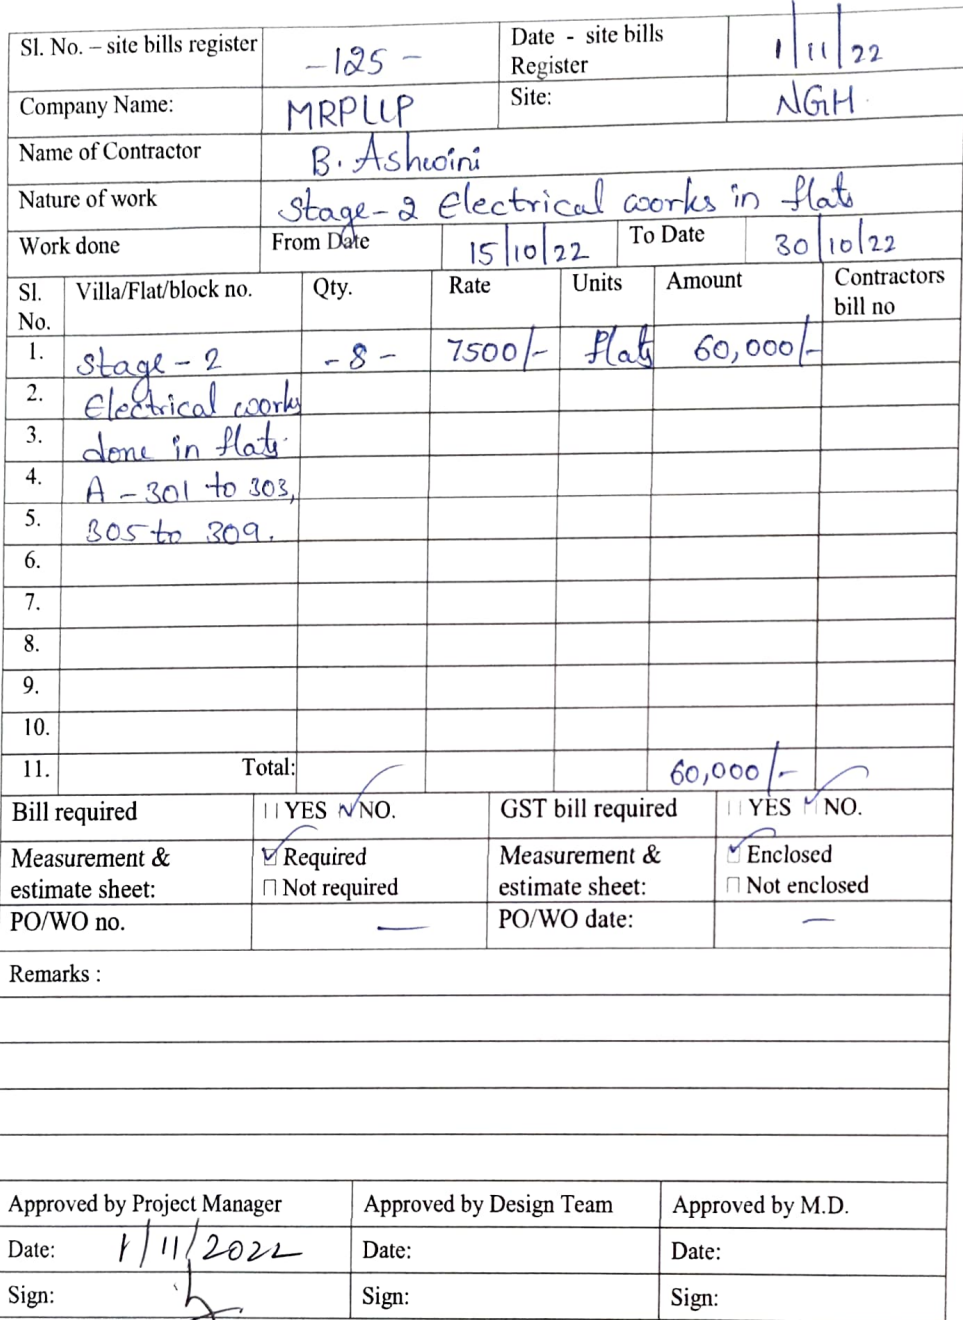 Sl. No. – site bills register -125- Date - site bills Register 1/11/22
Company Name: MRPLLP Site: NGH
Name of Contractor B. Ashwini
Nature of work Stage-2 Electrical works in flats
Work done From Date 15/10/22 To Date 30/10/22
Sl. No. Villa/Flat/block no. Qty. Rate Units Amount Contractors bill no
1. Stage-2 -8- 7500/- flats 60,000/-
2. Electrical works
3. done in flats
4. A-301 to 303,
5. 305 to 309.
6.
7.
8.
9.
10.
11. Total: 60,000/-
Bill required YES NO. GST bill required YES NO.
Measurement & estimate sheet: Required Measurement & estimate sheet: Enclosed
Not required Not enclosed
PO/WO no. — PO/WO date: —
Remarks :
Approved by Project Manager Approved by Design Team Approved by M.D.
Date: 1/11/2022 Date: Date:
Sign: Sign: Sign: